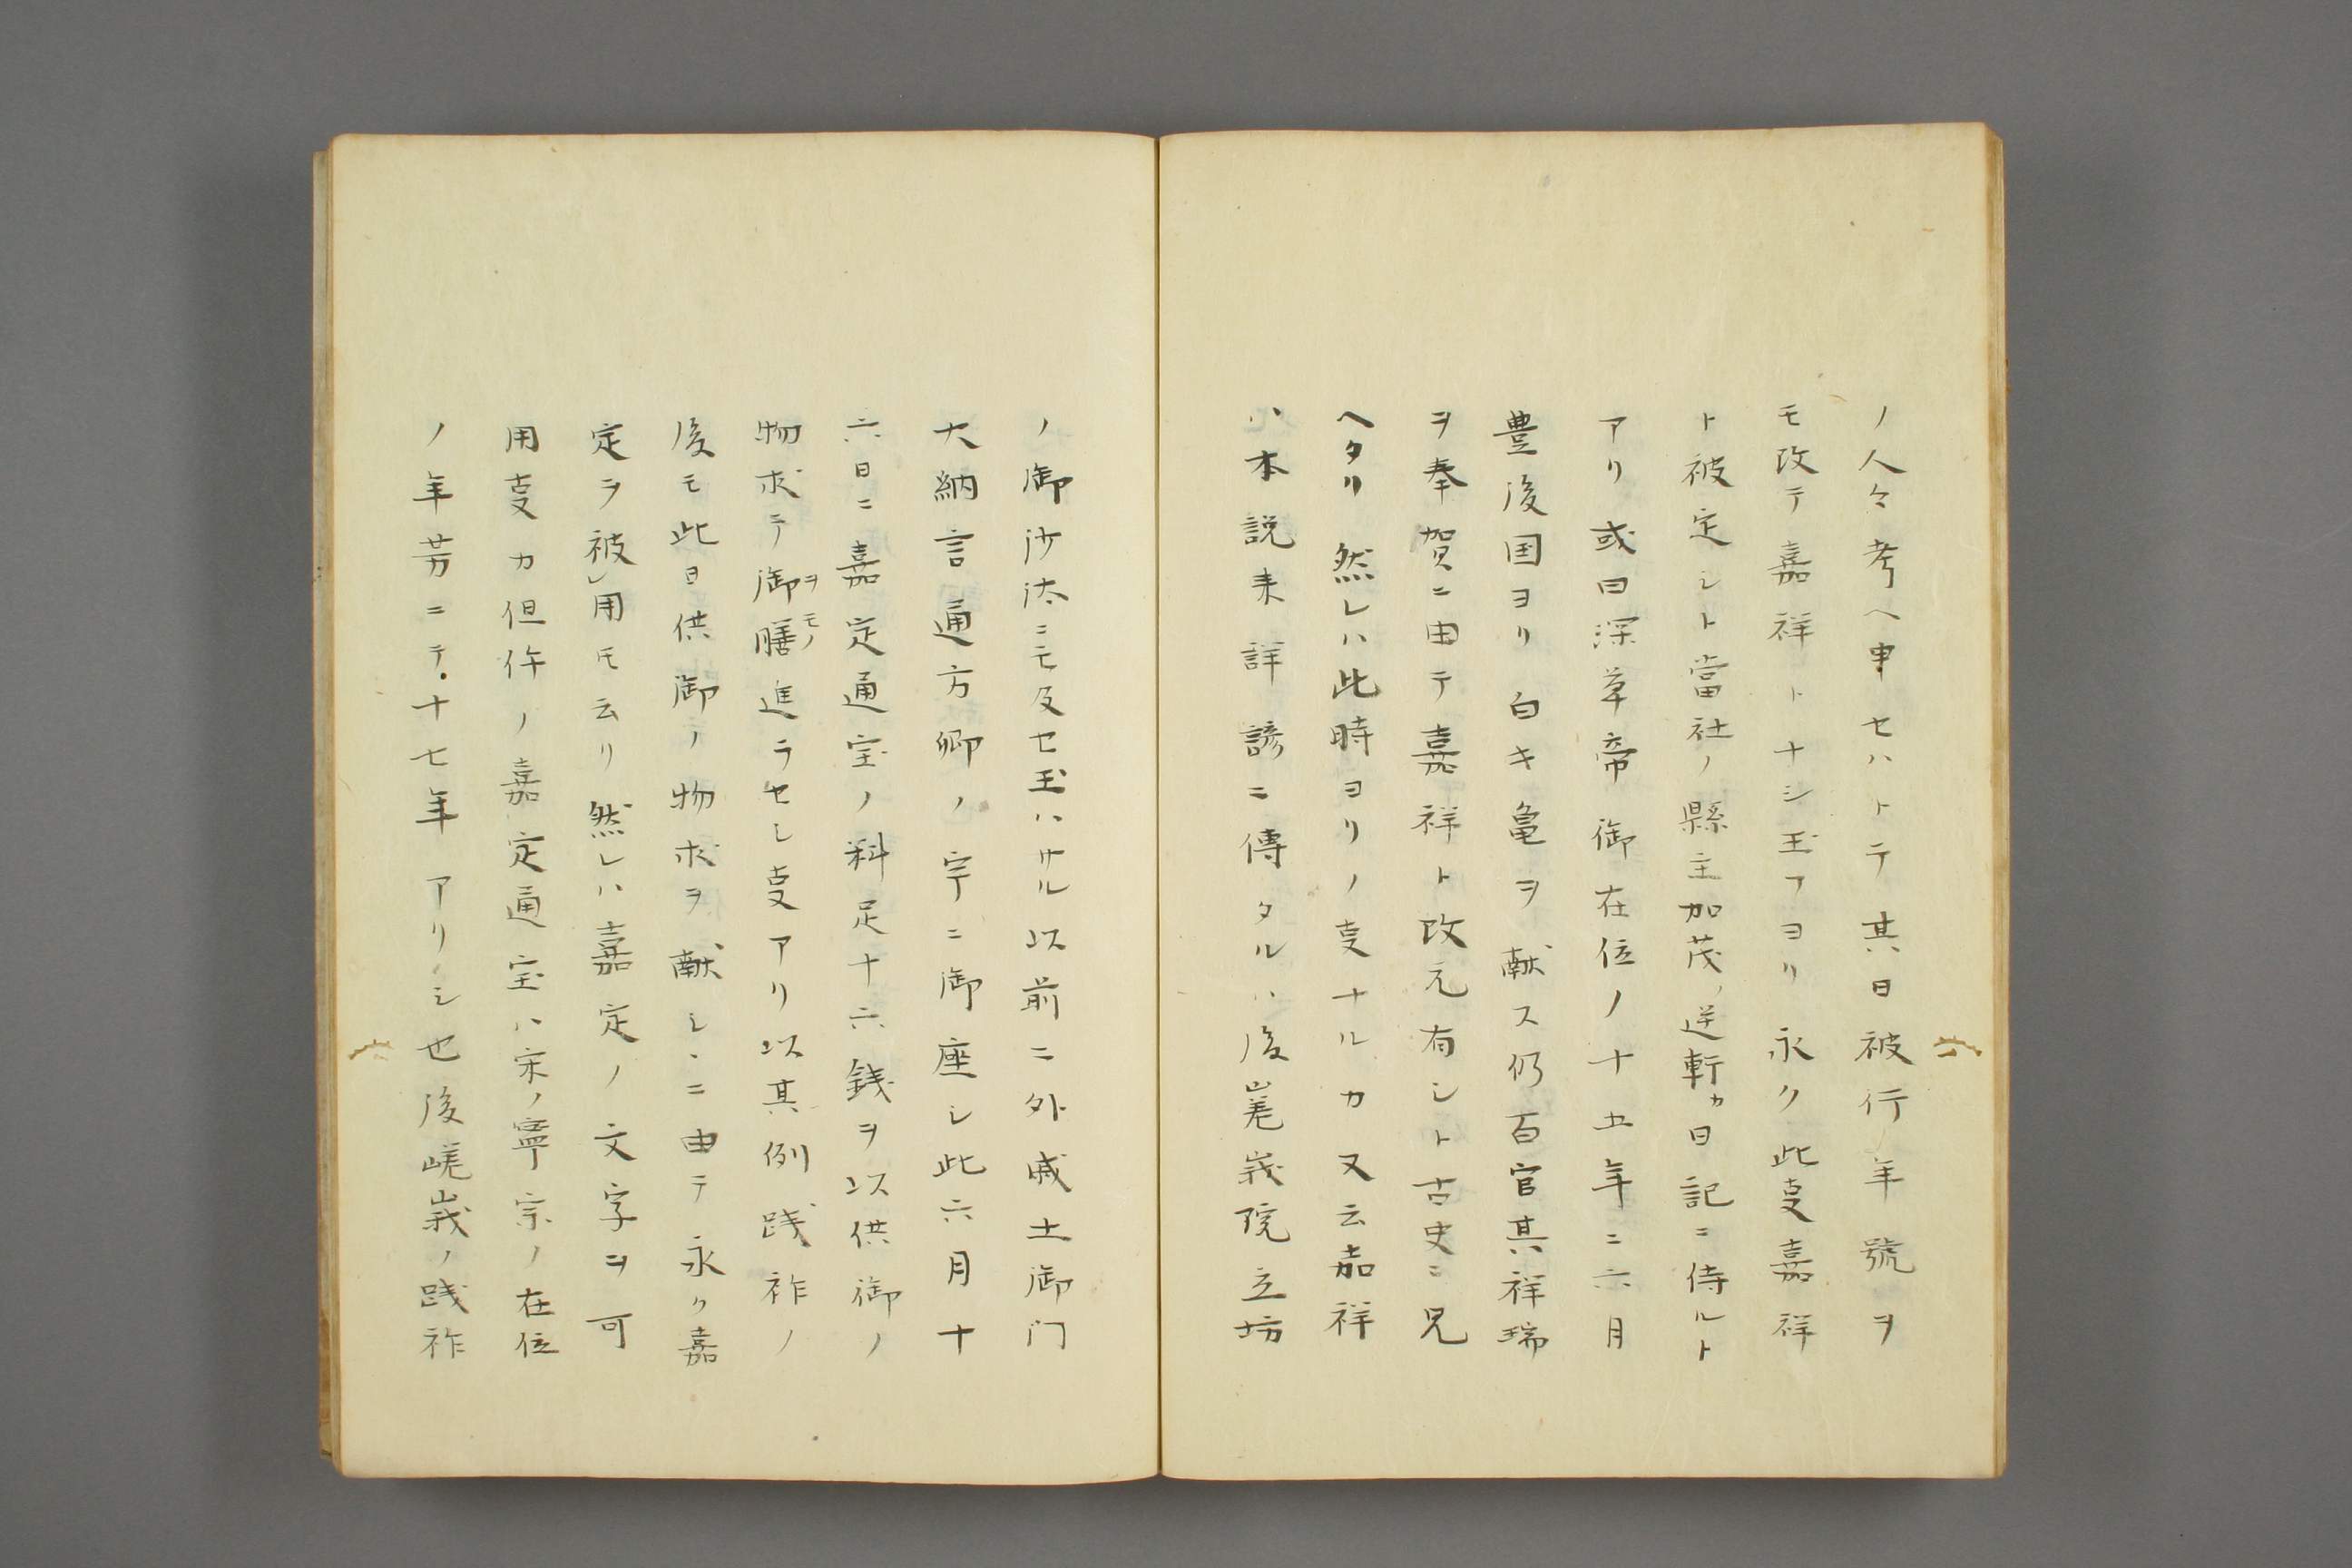 ノ人々考ヘ申セハトテ其日被行年號ヲ
モ改テ嘉祥トナシ玉フヨリ永ク此叓嘉祥
ト被定シト當社ノ縣主加茂ノ逆軒カ日記ニ侍ルト
アリ或曰深草帝御在位ノ十五年ニ六月
豊後国ヨリ白キ亀ヲ献ス仍百官其祥瑞
ヲ奉賀ニ由テ嘉祥ト改元有シト古史ニ見
ヘタリ然レハ此時ヨリノ叓ナルカ又云嘉祥
ハ本説未詳諺ニ傳タルハ後嵯峩院立坊
ノ御沙汰ニモ及セ玉ハサル以前ニ外戚土御门
大納言通方卿ノ亭ニ御座シ此六月十
六日ニ嘉定通宝ノ料足十六銭ヲ以供御ノ
物求テ御膳ヲモノ進ラセシ叓アリ以其例践祚ノ
後モ此日供御ノ物求ヲ献シヽニ由テ永ク嘉
定ヲ被レ用モ云リ然レハ嘉定ノ文字ヲ可
用叓カ但件ノ嘉定通宝ハ宋ノ寧宗ノ在位
ノ年号ニテ十七年アリシ也後嵯峩ノ践祚